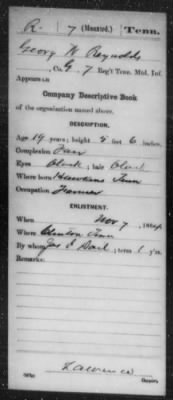 R. 7 (Mounted.) Tenn.
Georg W Reynolds
Co. G, 7 Reg't Tenn. Mtd. Inf.
Appears on
Company Descriptive Book
of the organization named above.
DESCRIPTION.
Age 19 years; height 5 feet 6 inches.
Complexion Fair
Eyes Black; hair Black
Where born Hawkins Tenn
Occupation Farmer
ENLISTMENT.
When Nov 7, 1864.
Where Clinton Tenn
By whom Jas; term 1 y'rs.
Remarks:
Lawrence
Copyist.